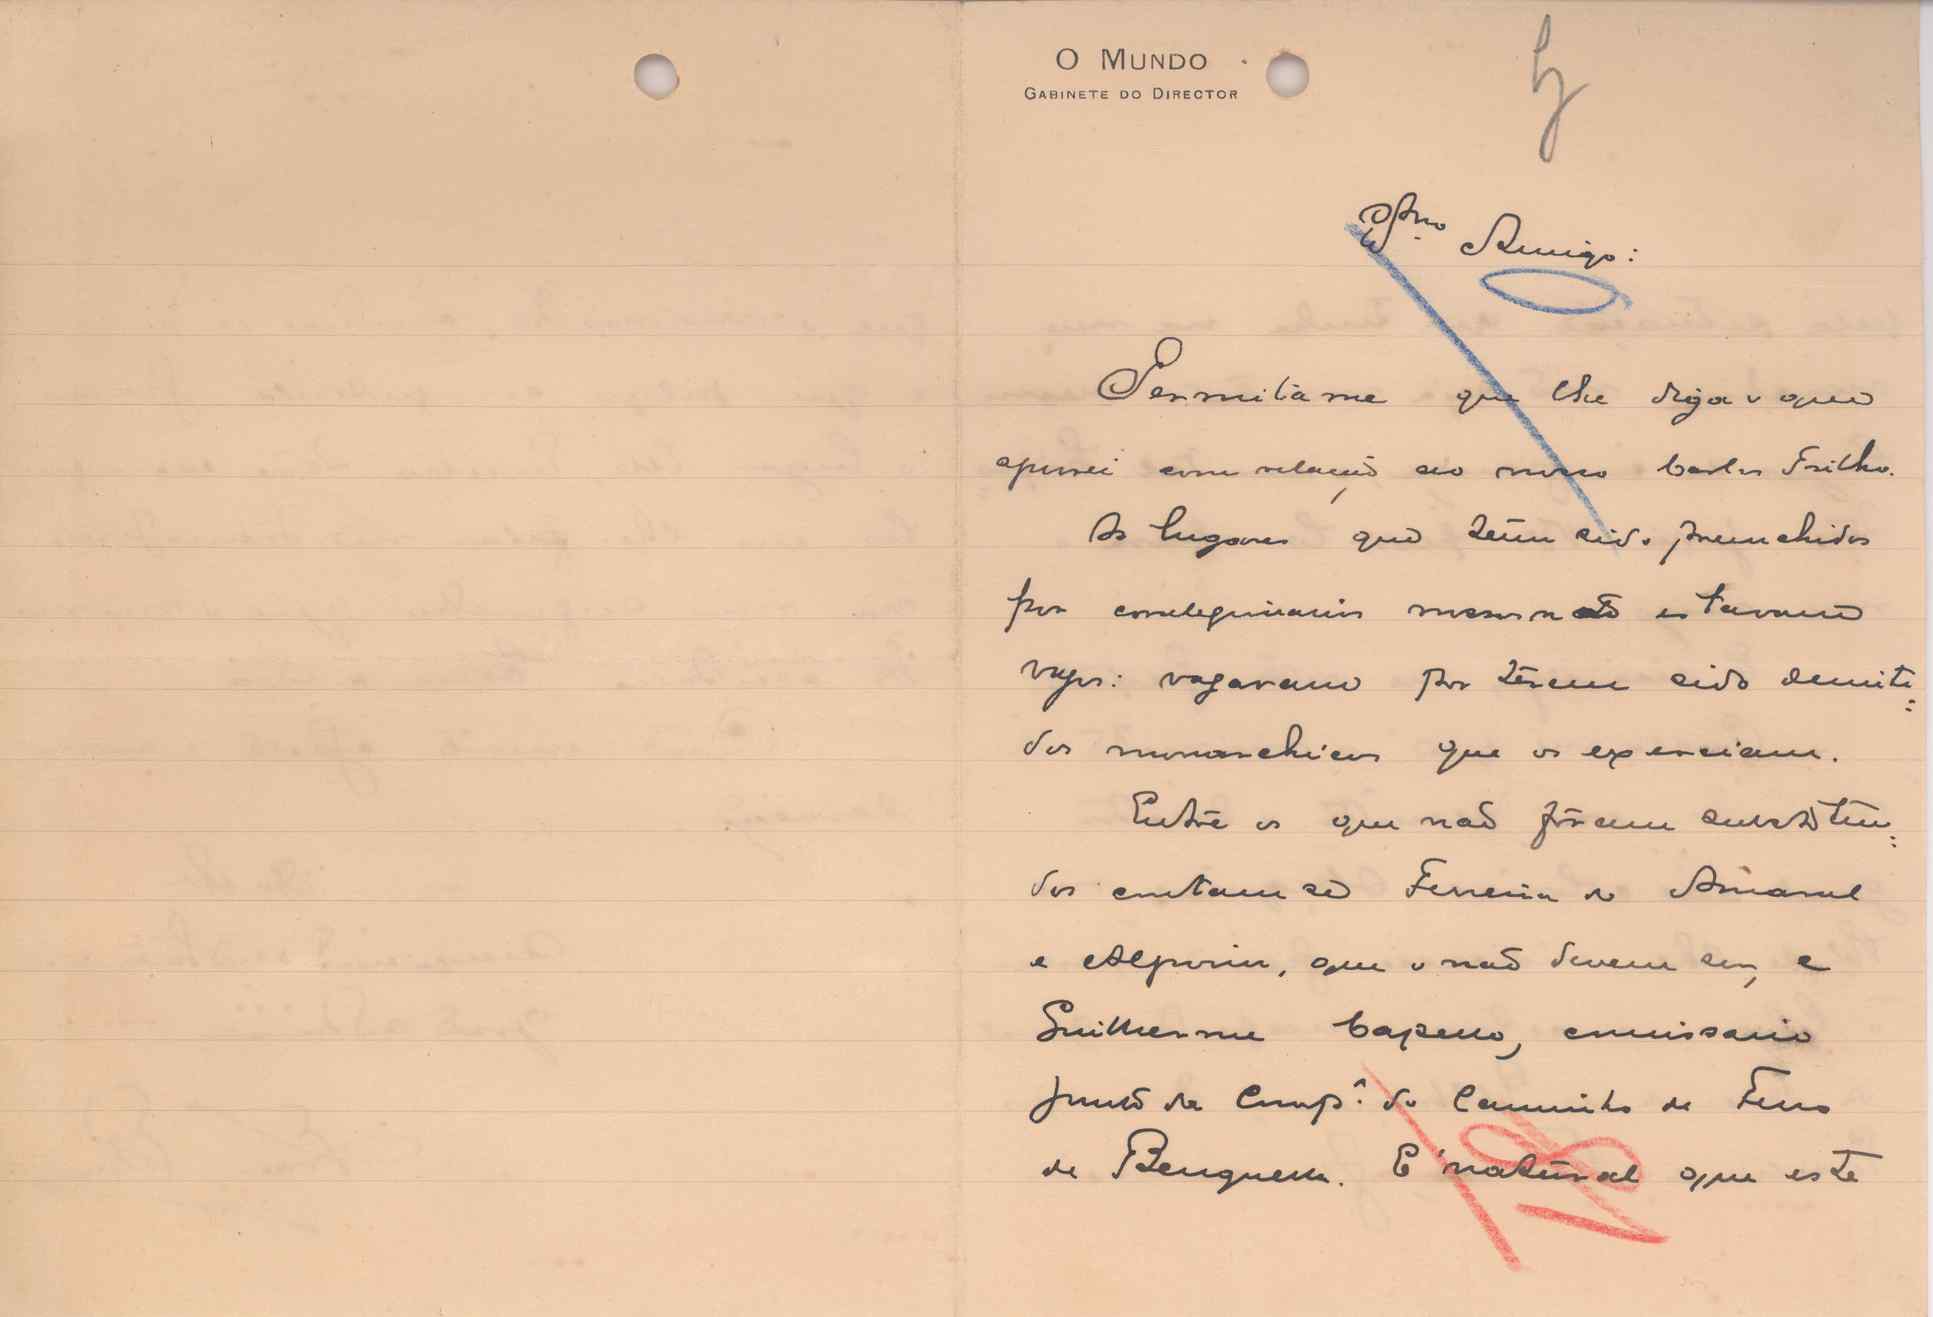 O MUNDO
GABINETE DO DIRECTOR
Amigo:
Permita-me que lhe diga o que
apurei com relação ao nosso Carlos Trilho.
Os lugares que têem sido preenchidos
por correligionarios nossos não estavam
vagos: vagaram por têrem sido demiti=
dos monarchicos que os exerciam.
Entre os que não fôram substitui=
dos contam-se Ferreira do Amaral
e Alpoim, que o não devem ser, e
Guilherme Capello, comissario
junto da Comp.ª do Caminho de Ferro
de Benguella. E' natural que este